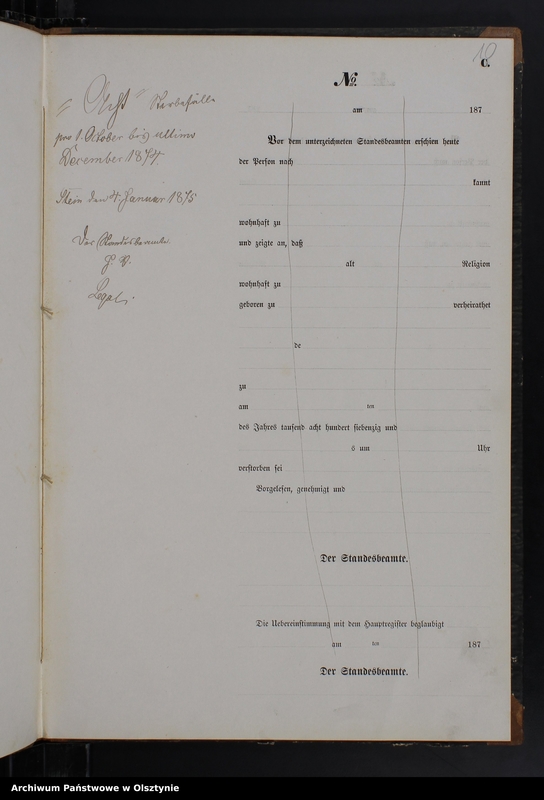 10
C.
"Acht" Sterbefälle
pro 1. October bis ultimo
December 1874
Stein den 4. Januar 1875
Der Standesbeamte.
J. V.
№
am 187
Vor dem unterzeichneten Standesbeamten erschien heute
der Person nach
kannt
wohnhaft zu
und zeigte an, daß
alt Religion
wohnhaft zu
geboren zu verheirathet
de
zu
am ten
des Jahres tausend acht hundert siebenzig und
s um Uhr
verstorben sei
Vorgelesen, genehmigt und
Der Standesbeamte.
Die Uebereinstimmung mit dem Hauptregister beglaubigt
am ten 187
Der Standesbeamte.
Archiwum Państwowe w Olsztynie